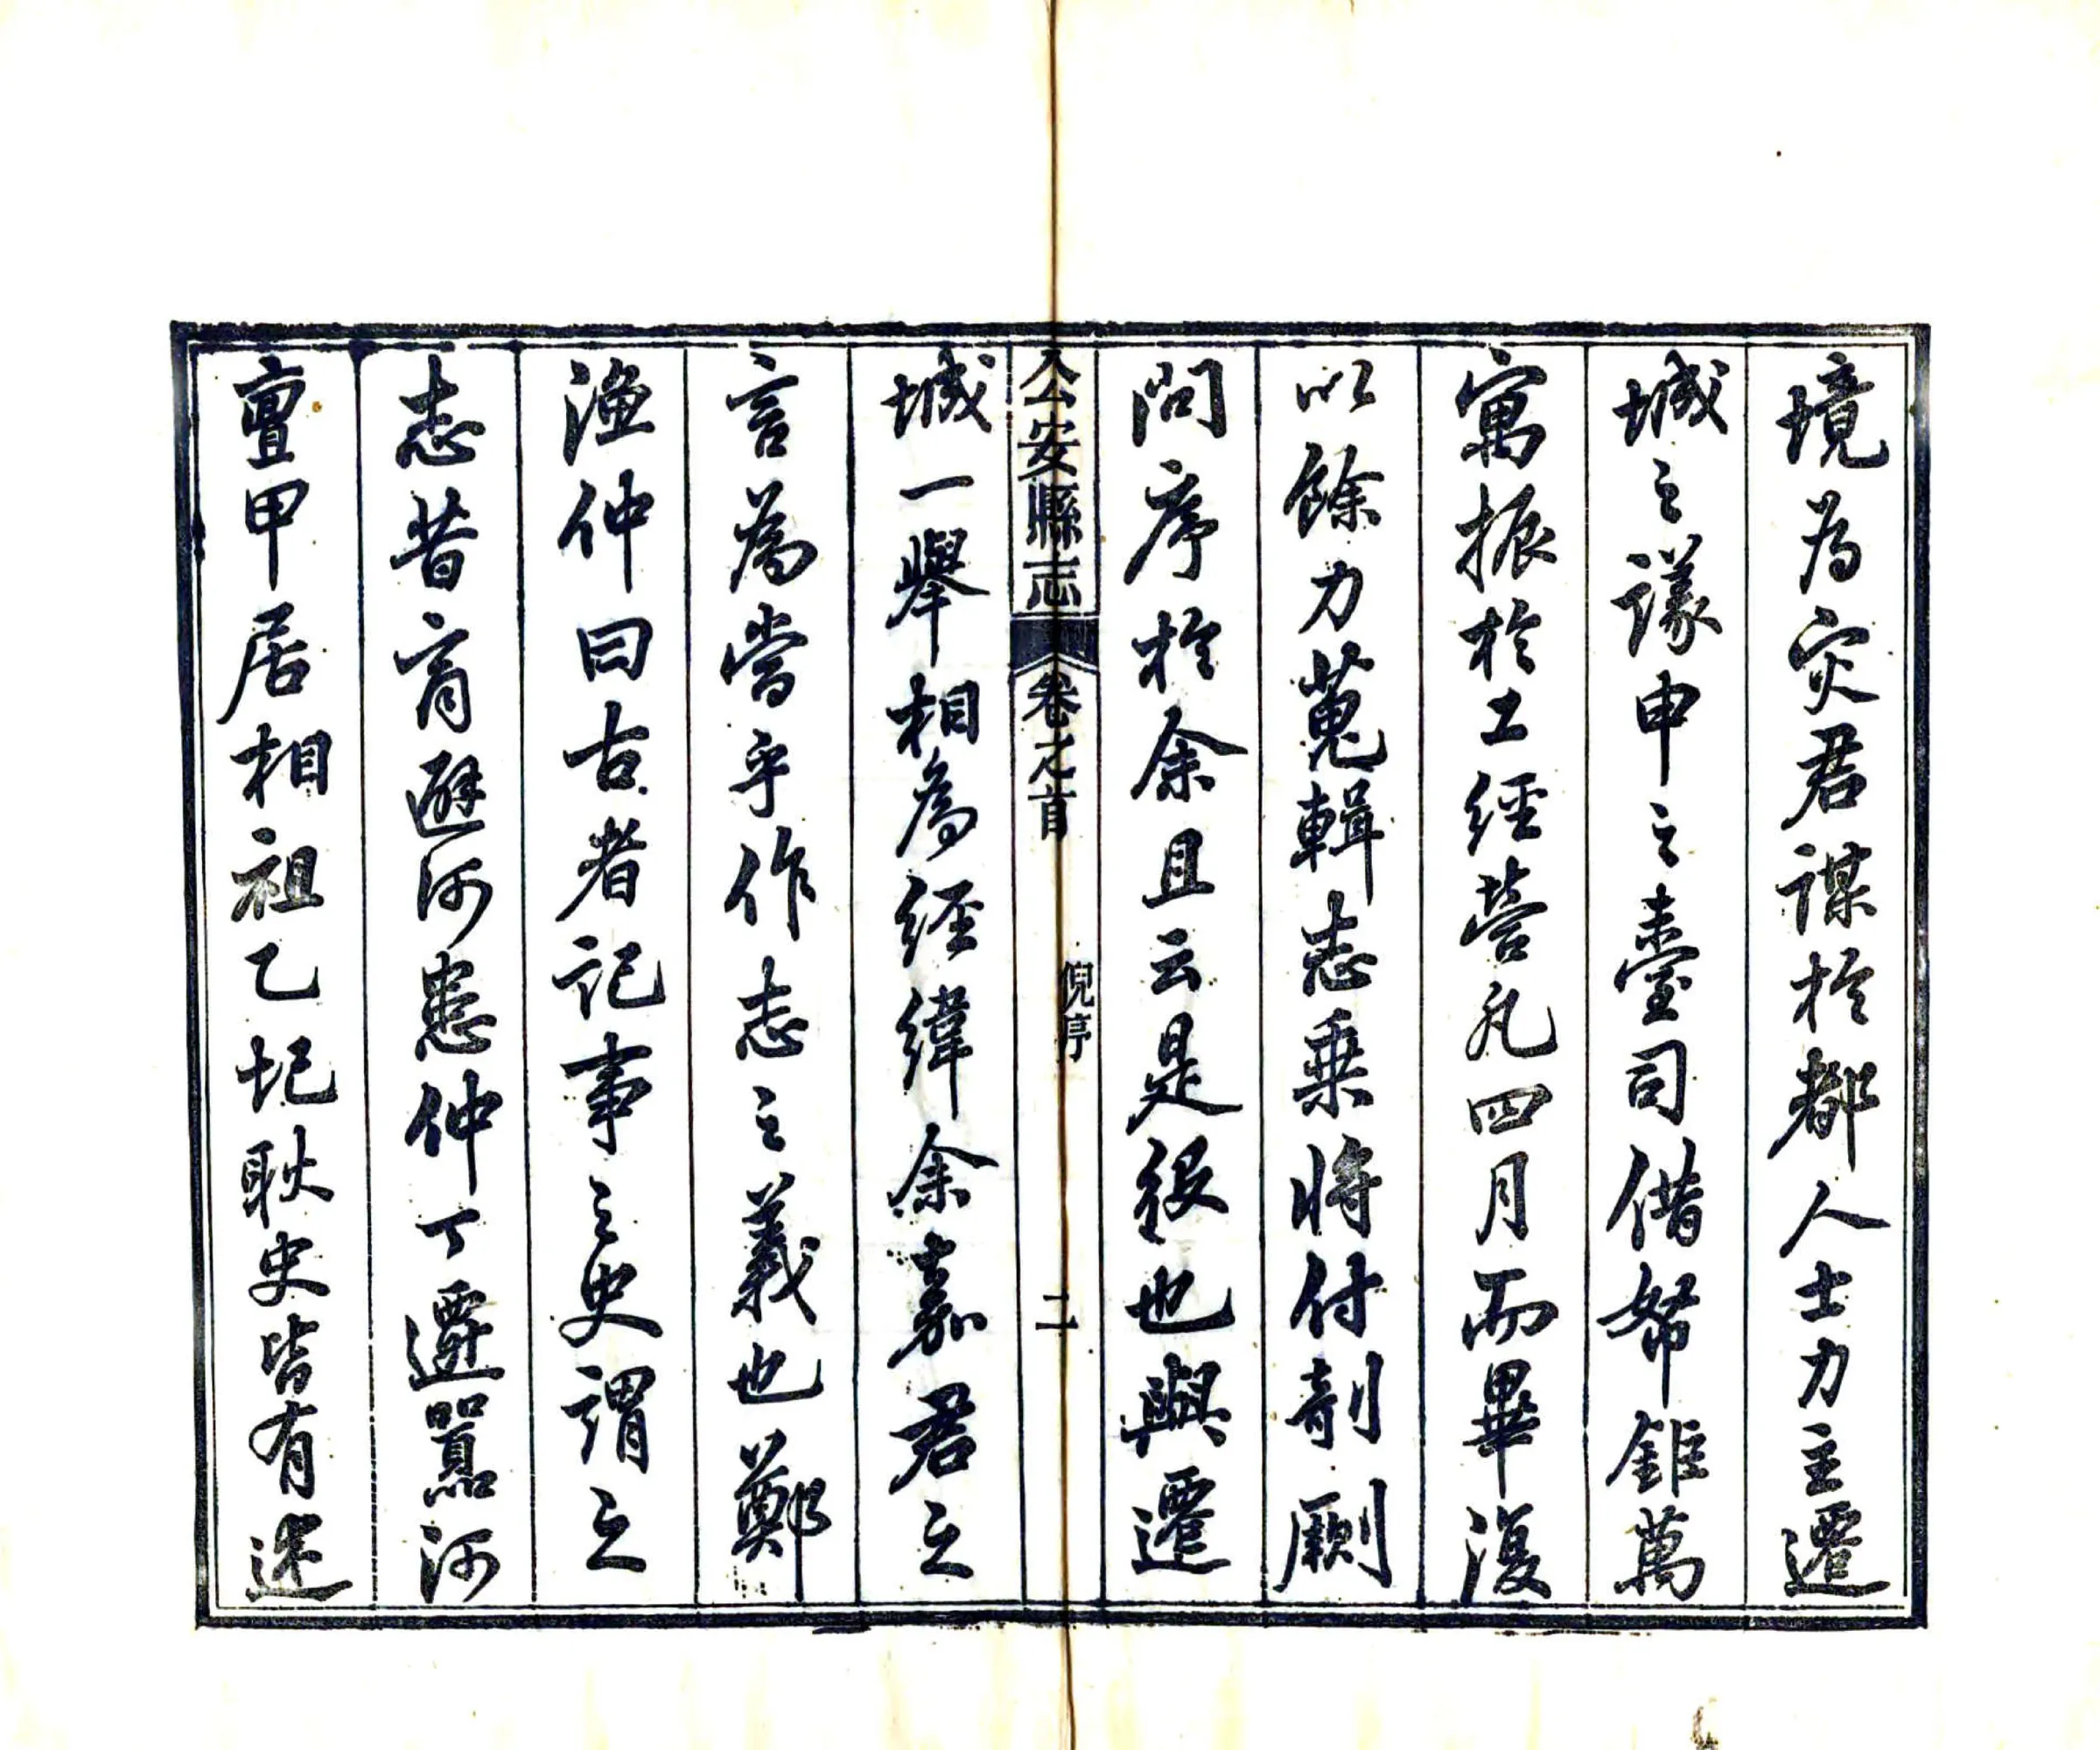 境為灾君謀於都人士力主遷
城之議申之臺司借帑鉅萬
寓振於工經營凡四月而畢復
以餘力蒐輯志乗將付剞劂
問序於余且云是役也與遷
公安縣志 卷之首 倪序 二
城一舉相為經緯余嘉君之
言為當乎作志之義也鄭
漁仲曰古者記事之史謂之
志昔有避河患仲丁遷囂河
亶甲居相祖乙圮耿史皆有述